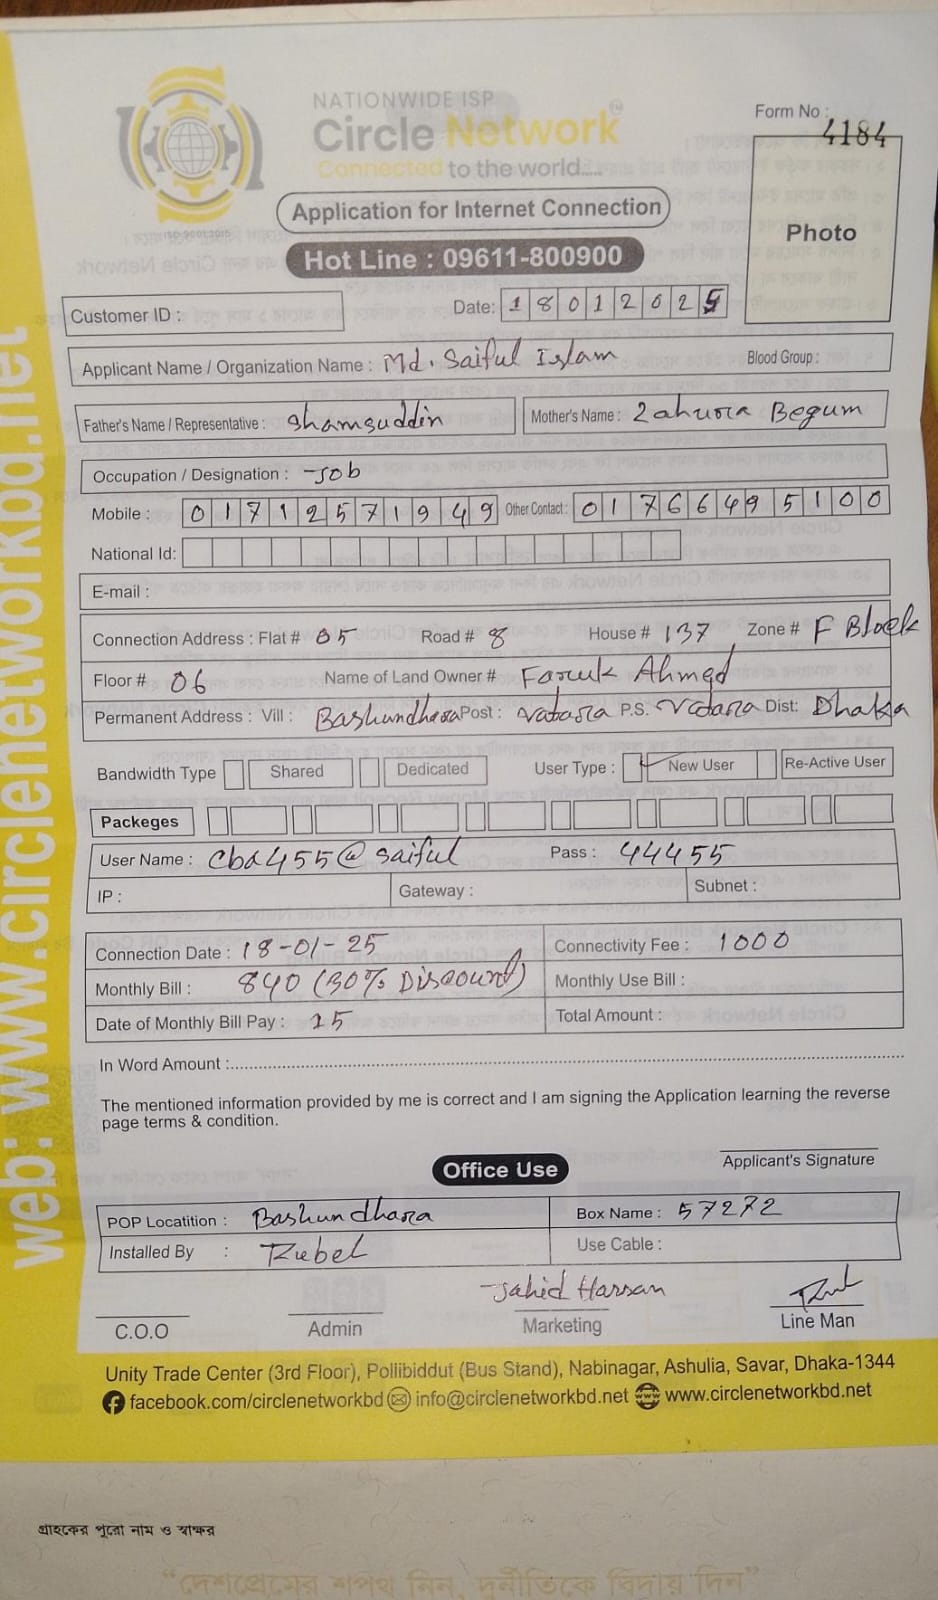 NATIONWIDE ISP
Circle Network
Connected to the world....
ISO 9001:2015
Form No : 4184
Application for Internet Connection
Photo
Hot Line : 09611-800900
Customer ID :
Date: 18012025
Applicant Name / Organization Name : Md. Saiful Islam Blood Group :
Father's Name / Representative : Shamsuddin Mother's Name : Zahura Begum
Occupation / Designation : Job
Mobile : 01712571949 Other Contact : 01766495100
National Id:
E-mail :
Connection Address : Flat # 05 Road # 8 House # 137 Zone # F Block
Floor # 06 Name of Land Owner # Faruk Ahmed
Permanent Address : Vill : Bashundhara Post : Vatara P.S. Vatara Dist: Dhaka
Bandwidth Type Shared Dedicated User Type : ✓ New User Re-Active User
Packeges
User Name : cbd455@saiful Pass : 44455
IP : Gateway : Subnet :
Connection Date : 18-01-25 Connectivity Fee : 1000
Monthly Bill : 840 (30% Discount) Monthly Use Bill :
Date of Monthly Bill Pay : 15 Total Amount :
In Word Amount :
The mentioned information provided by me is correct and I am signing the Application learning the reverse
page terms & condition.
Applicant's Signature
Office Use
POP Locatition : Bashundhara Box Name : 57272
Installed By : Rubel Use Cable :
Jahid Hassan
C.O.O Admin Marketing Line Man
Unity Trade Center (3rd Floor), Pollibiddut (Bus Stand), Nabinagar, Ashulia, Savar, Dhaka-1344
facebook.com/circlenetworkbd info@circlenetworkbd.net www.circlenetworkbd.net
web: www.circlenetworkbd.net
গ্রাহকের পুরো নাম ও স্বাক্ষর
“দেশপ্রেমের শপথ নিন, দুর্নীতিকে বিদায় দিন”